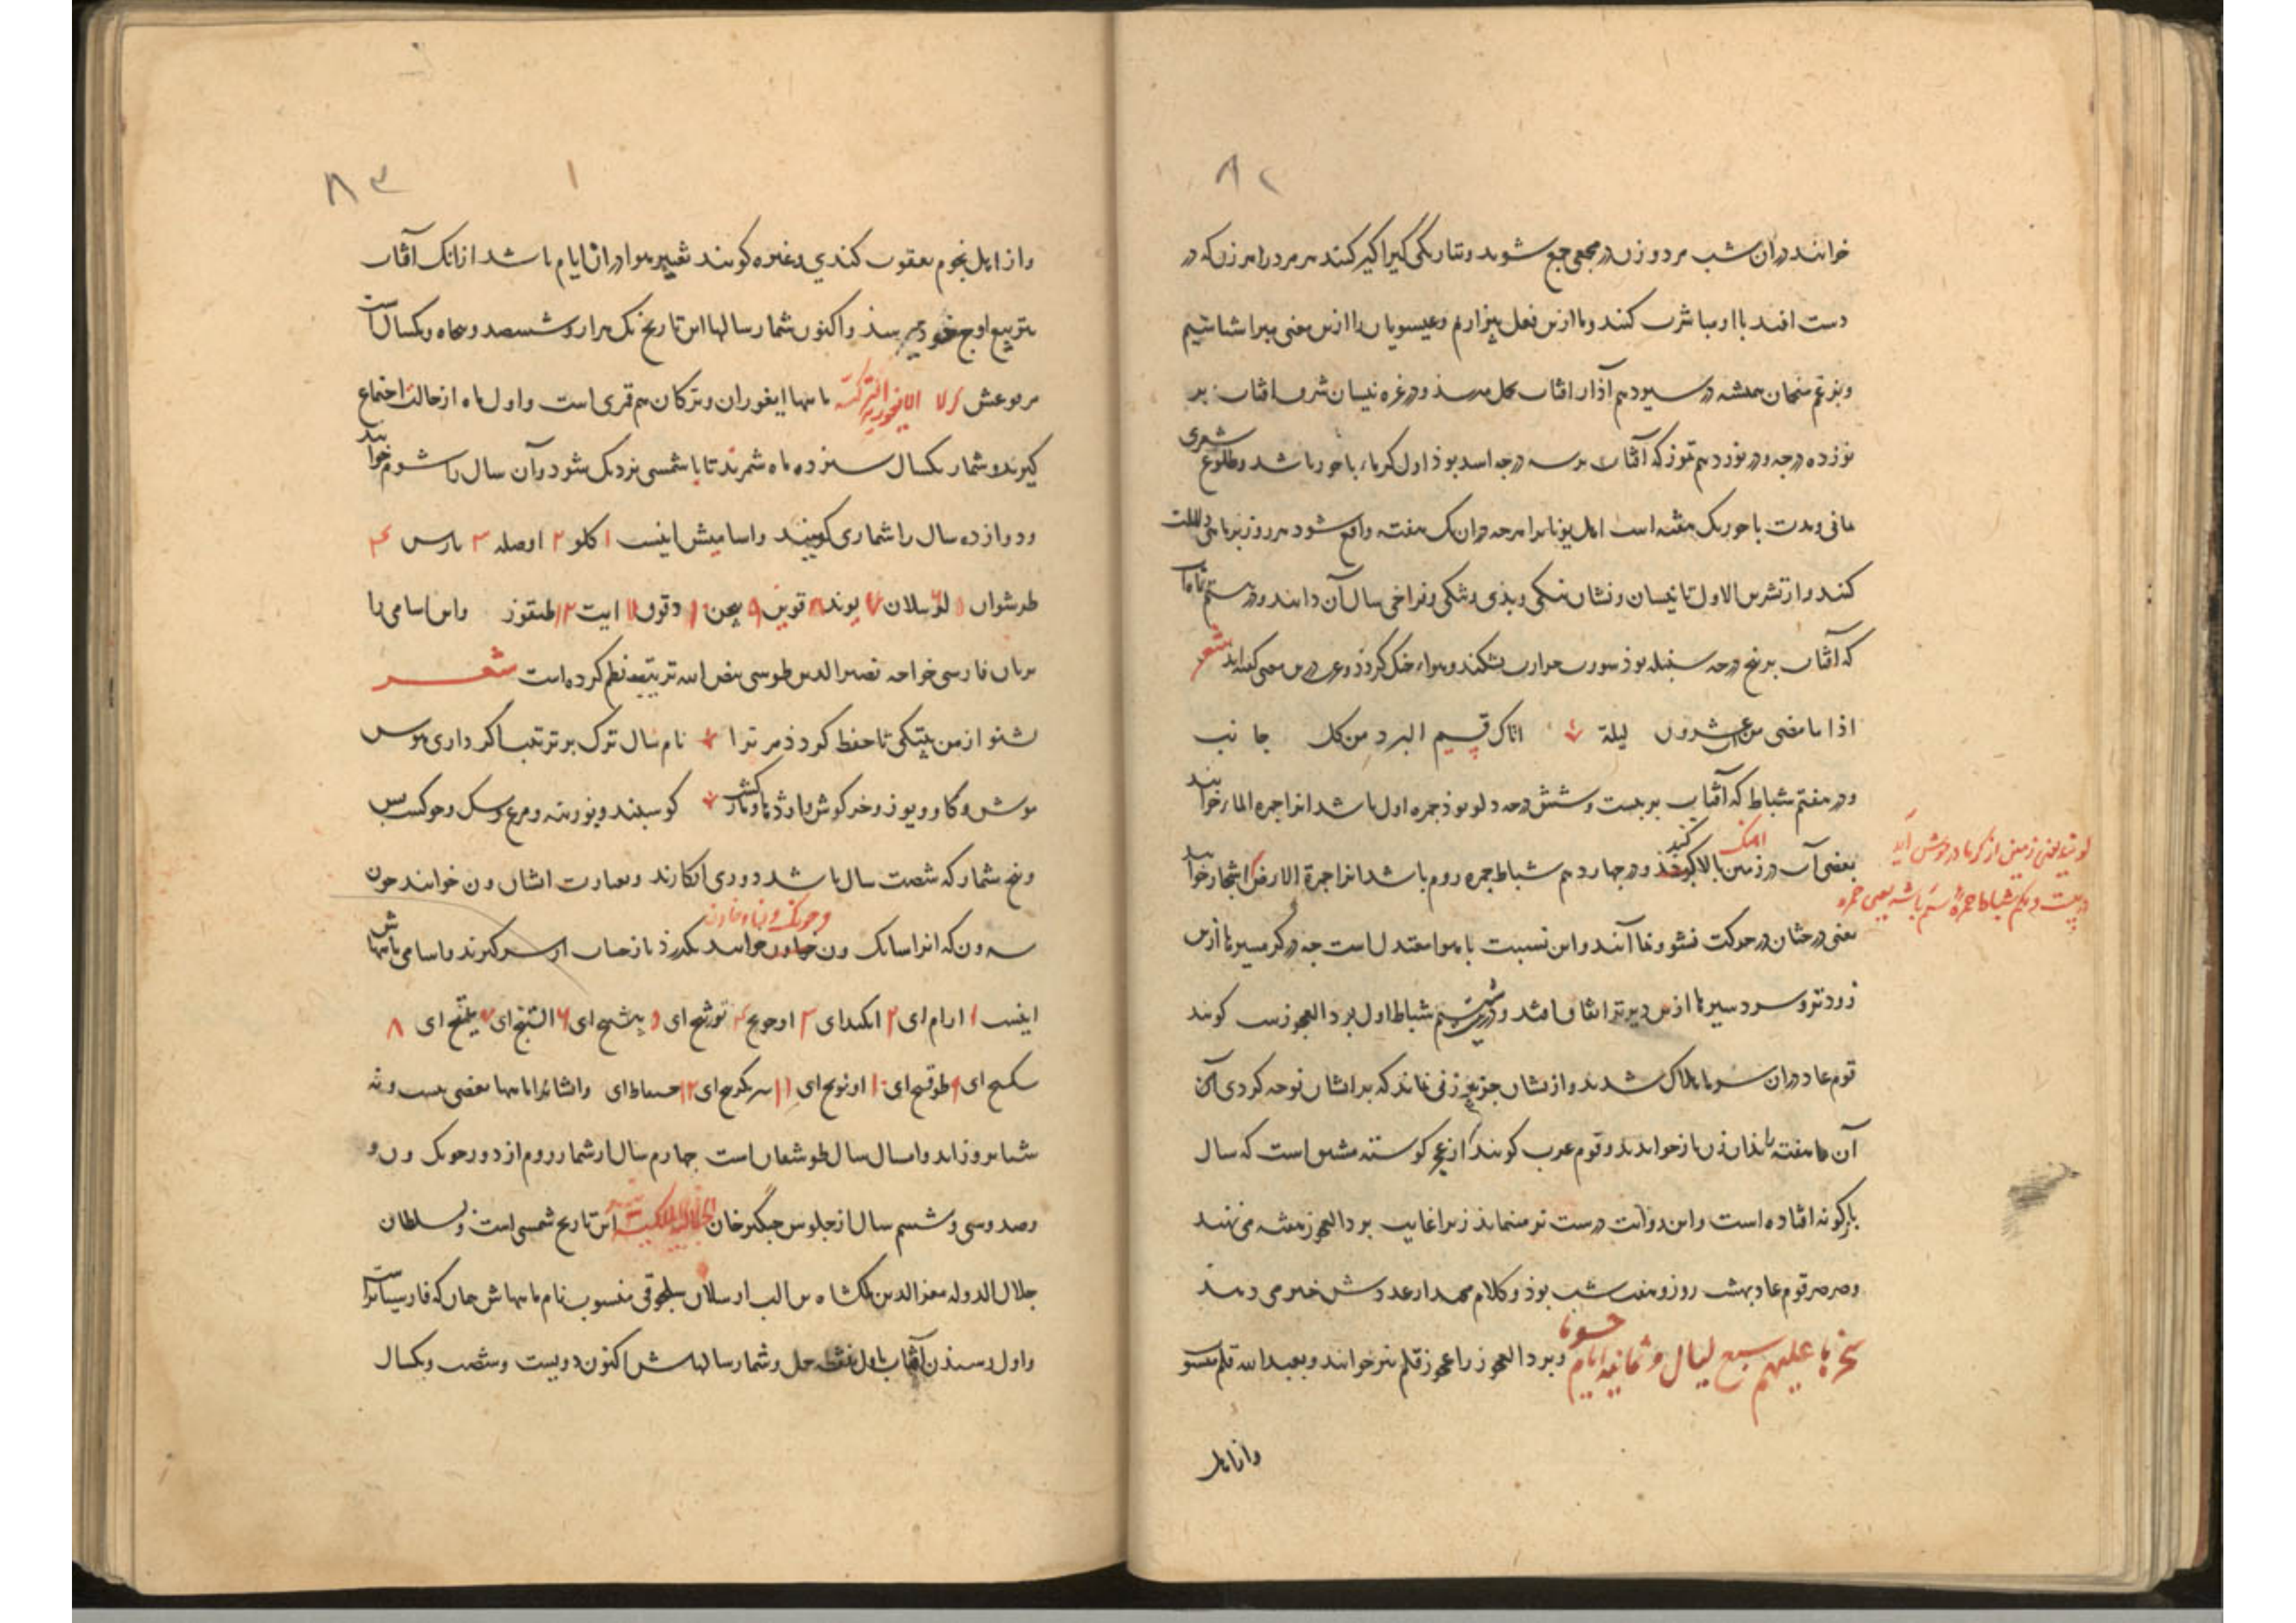 ۸۲
خوانند در آن شب مرد و زن در مجمعی جمع شوند و بتاریکی گیراگیر کنند هر مرد را هر زن که در
دست افتد با او مباشرت کنند و ما ازین فعل بیزاریم و عیسویان را ازین معنی مبرا شناسیم
و بزعم منجمان همیشه در سیزدهم آذار افتاب بحمل میرسد و در غره نیسان شرف افتاب بر
نوزده درجه و در نوزدهم تموز که آفتاب بر سه درجه اسد بوذ اول گرماء باحور باشد و طلوع شعری
یمانی و مدت باحور یک هفته است اهل یونان هرچه در آن یک هفته واقع شود هر روز بر ماهی دلالت
کند و از تشرین الاول تا نیسان و نشان نیکی و بذی و تنکی و فراخی سال آن دانند و در بیستم آب ماه
که آفتاب بر پنج درجه سنبله بوذ سورت حرارت بشکند و هواء خنک گردذ و عرب درین معنی گفته‌اند شعر
اذا ما مضی من آب عشرون لیلة اتاک قسیم البرد من کل جانب
و در هفتم شباط که آفتاب بر بیست و شش درجه دلو بوذ جمره اول باشد انرا جمره الماء خوانند
یعنی آب در زمین بالا گیرذ و در چهاردهم شباط جمره دوم باشد انرا جمرة الارض اشجار خوانند
آهنگ کند
گویند یعنی زمین از گرما در جوش آید
در بیست و یکم شباط جمرهٔ سیم باشد یعنی جمره
یعنی درختان در حرکت نشو و نما آیند و این نسبت با هوا معتدل است چه در گرمسیرها ازین
زودتر و سردسیرها ازین دیرتر اتفاق افتد و در بیست و ششم شباط اول برد العجوزست گویند
قوم عاد در آن سرما هلاک شدند و ازیشان جز عجوز زنی نماند که بر ایشان نوحه کردی آن
آن هفته بذان زن باز خواندند و قوم عرب گویند از عجز گوسته مشتق است که سال
بازگونه افتاده است و این روایت درست تر مینماید زیرا غایب برد العجوز هفته می نهند
و صرصر قوم عاد بهشت روز و هفت شب بوذ و کلام مجید از عددش خبر می دهد
سخرها علیهم سبع لیال و ثمانیة ایام حسوما و برد العجوز را عجوز قلم نیز خوانند و بعبدالله قلم منسو
واز اهل
۸۳
واز اهل نجوم یعقوب کندی و غیره گویند تغییر هوا در آن ایام باشد از آنک آفتاب
بتربیع اوج خود میرسد و اکنون شمار سالها این تاریخ یک هزار و ششصد و پنجاه و یکسال است
مرفوعش کرلا الایغوریه الترکیه ماهها ایغوران و ترکان هم قمری است و اول ماه از حالت اجتماع
گیرند و شمار یکسال سیزده ماه شمرند تا با شمسی نزدیک شود و آن سال را شوم خوانند
و دوازده سال را شماری گویند و اسامیش اینست ۱ کلو ۲ اوصله ۳ بارس ۴
طوشوان ۵ لو ۶ سلان ۷ یوند ۸ قوین ۹ پیچن ۱۰ دقوق ۱۱ ایت ۱۲ طنقوز و این اسامی را
بزبان فارسی خواجه نصیر الدین طوسی بعض ابیات بترتیب نظم کرده است شعر
بشنو از من بیتکی تا حفظ گردذ مر ترا نام سال ترک بر ترتیب اگر داری هوس
موش و گاو و یوز و خرگوش باز اژدها و مار کشت گوسپند و بوزینه و مرغ و سگ و خوکست بس
و پنج شمار که شصت سال باشد دوری انگارند و بعبارت ایشان ون خوانند چون
و چونک ون و خاون
سه ون که انرا سانک ون خاون خوانند بگذرذ باز حساب از سر گیرند و اسامی ماههاش
اینست ۱ ارام ای ۲ ایکندای ۳ اوچونج ۴ تورتنج ای ۵ بیشنج ای ۶ التینج ای ۷ یتنج ای ۸
سکسنج ای ۹ طوقسنج ای ۱۰ اونونج ای ۱۱ بیریکرمنج ای ۱۲ حسباط ای و ایشانرا ماهها بعضی بیست و نه
شبانروز اید و امسال سال طوشقان است چهارم سال از شمار دوم از دور چونک ون و
و صد و سی و ششم سال از جلوس جنگیز خان الجلالیه الملکیه این تاریخ شمسی است و بسلطان
جلال الدوله معز الدین ملکشاه بن الب ارسلان سلجوقی منسوب نام ماههاش همان که فارسیان راست
و اول رسیدن آفتاب باول نقطه حمل و شمار سالهاش اکنون دویست و شصت و یکسال